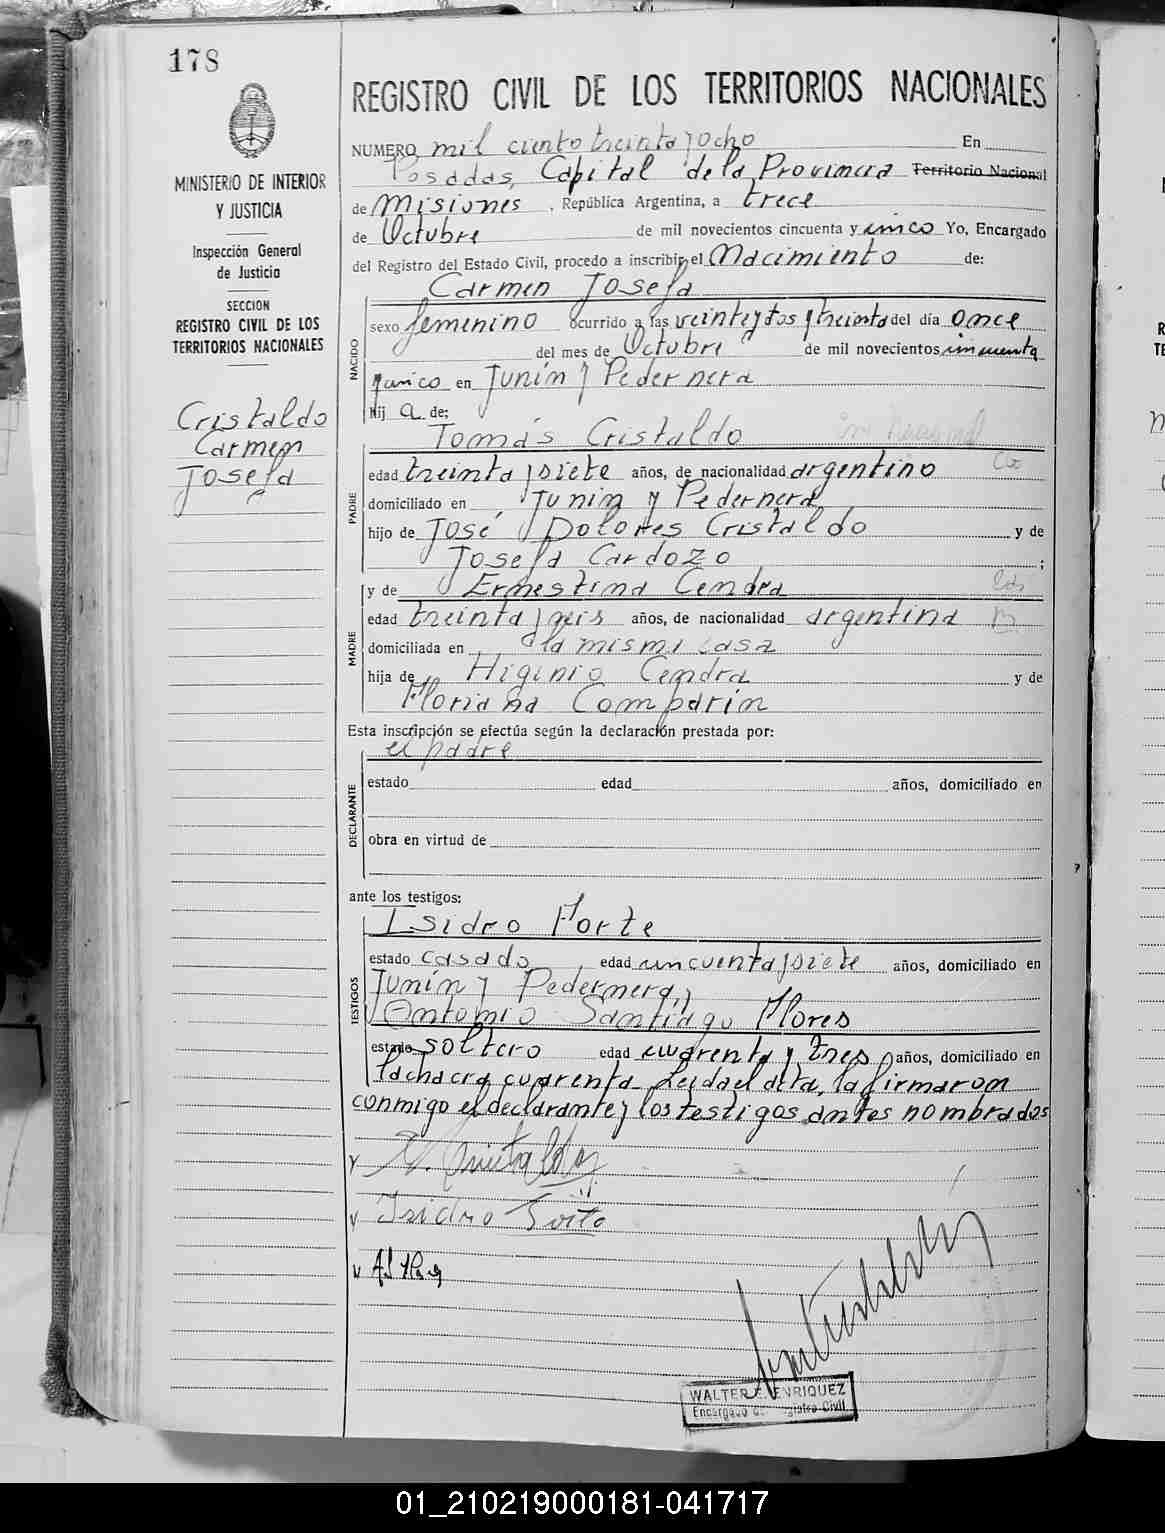 178
MINISTERIO DE INTERIOR
Y JUSTICIA
Inspección General
de Justicia
SECCION
REGISTRO CIVIL DE LOS
TERRITORIOS NACIONALES
Cristaldo
Carmen
Josefa
REGISTRO CIVIL DE LOS TERRITORIOS NACIONALES
NUMERO mil ciento treinta y ocho En
Posadas, Capital de la Provincia Territorio Nacional
de Misiones, República Argentina, a trece
de Octubre de mil novecientos cincuenta y cinco Yo, Encargado
del Registro del Estado Civil, procedo a inscribir el Nacimiento de:
Carmen Josefa
NACIDO
sexo femenino ocurrido a las veintey dos y treinta del día once
del mes de Octubre de mil novecientos cincuenta
y cinco en Junín y Pedernera
hij a de:
Tomás Cristaldo
PADRE
edad treinta y siete años, de nacionalidad argentino
domiciliado en Junín y Pedernera
hijo de José Dolores Cristaldo y de
Josefa Cardozo ;
y de Ernestina Cendra
MADRE
edad treinta y seis años, de nacionalidad argentina
domiciliada en la misma casa
hija de Higinio Cendra y de
Floriana Comparín
Esta inscripción se efectúa según la declaración prestada por:
el padre
DECLARANTE
estado edad años, domiciliado en
obra en virtud de
ante los testigos:
Isidro Forte
TESTIGOS
estado casado edad cincuenta y siete años, domiciliado en
Junín y Pedernera, y
Antonio Santiago Flores
estado soltero edad cuarenta y tres años, domiciliado en
la chacra cuarenta. Leida el acta, la firmaron
conmigo el declarante y los testigos antes nombrados
WALTER E. ENRIQUEZ
Encargado del Registro Civil
01_210219000181-041717